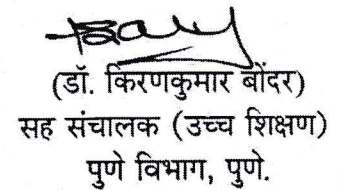 (डॉ. किरणकुमार बोंदर)
सह संचालक (उच्च शिक्षण)
पुणे विभाग, पुणे.